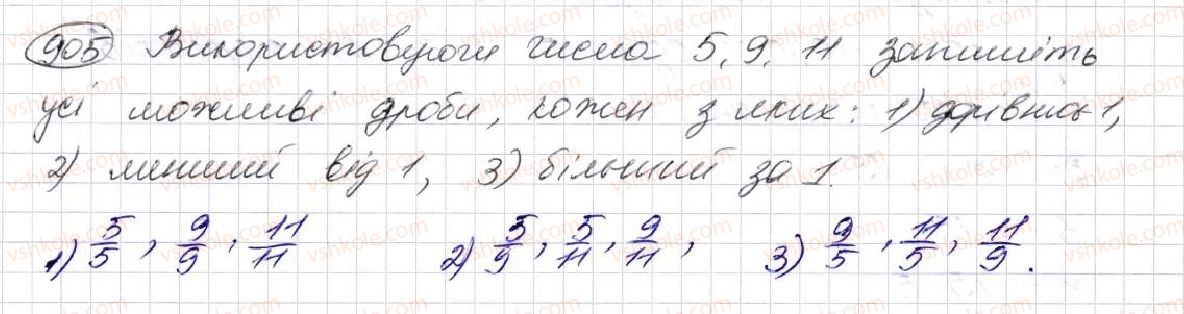 905 Використовуючи числа 5, 9, 11 запишіть
усі можливі дроби, кожен з яких: 1) дорівнює 1,
2) менший від 1, 3) більший за 1.
1) 5/5, 9/9, 11/11 2) 5/9, 5/11, 9/11, 3) 9/5, 11/5, 11/9.